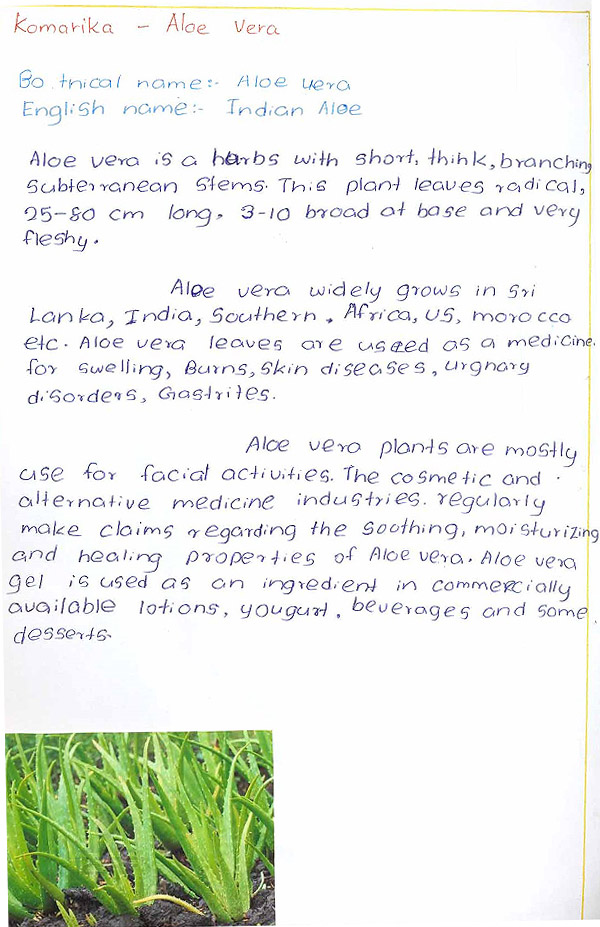 Komarika - Aloe Vera
Bo tnical name:- Aloe vera
English name:- Indian Aloe
Aloe vera is a herbs with short, thihk, branching
subterranean stems. This plant leaves radical,
25-80 cm long, 3-10 broad at base and very
fleshy.
Aloe vera widely grows in Sri
Lanka, India, Southern, Africa, US, morocco
etc. Aloe vera leaves are used as a medicine.
for swelling, Burns, skin diseases, urgnary
disorders, Gastrites.
Aloe vera plants are mostly
use for facial activities. The cosmetic and
alternative medicine industries. regularly
make claims regarding the soothing, moisturizing
and healing properties of Aloe vera. Aloe vera
gel is used as an ingredient in commercially
available lotions, yougurt, beverages and some
desserts.